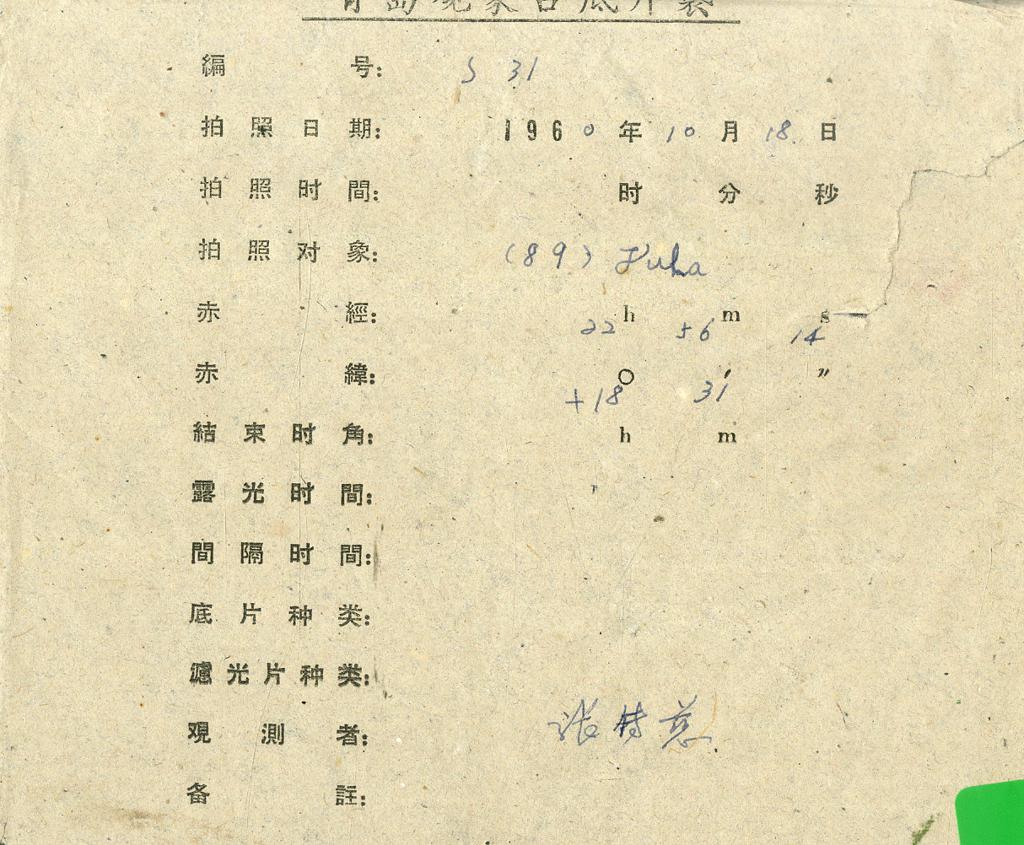 青島观象台底片袋
編号: S 31
拍照日期: 1960年10月18日
拍照时間: 时 分 秒
拍照对象: (89) Julia
赤經: 22h 56m 14s
赤緯: +18° 31′ ″
結束时角: h m
露光时間:
間隔时間:
底片种类:
濾光片种类:
观測者: 张
备註: